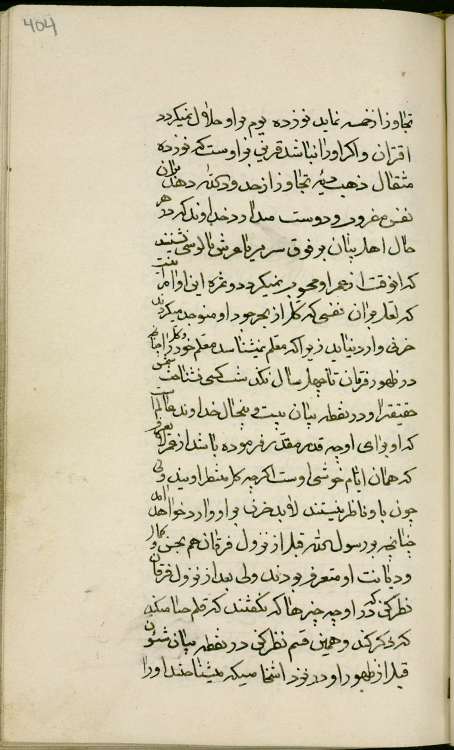 404
تجاوز از خمسه نماید نوزده یوم بر او حلال نمیگردد
اقتران واگر اورا نباشد قرین بر اوست که نوزده
مثقال ذهب دیه تجاوز از حدود الله دهد بر آن
نفس مغرور ودوست میدارد خداوند که در هر
حال اهل بیان بر فوق سریر یا عرش یا کرسی نشینند
که آنوقت از عمر او محسوب نمیگردد وثمره این اوامر
که لعل بر آن نفسی که کل از بحر جود او متوجد میگردند
حزنی وارد نیاید زیرا که معلم نمیشناسد معلم خود وکل را
در ظهور فرقان تا چهل سال نگذشت کسی نشناخت شمس
حقیقترا ودر نقطه بیان بیست وپنج سال خداوند عالم است
که او برای او چه قدر مقدر فرموده باشد از عمر
که همان ایام خوشی اوست اگرچه کل منتظر اویند ولی
چون باو ناظر نیستند لابد حزن بر او وارد خواهد آمد
چنانچه بر رسول الله قبل از نزول فرقان هم بحسن وکمال
ودیانت او معترف بودند ولی بعد از نزول فرقان
نظر کن که در او چه چیزها که نگفتند که قلم حیا میکند
که ذکر کند وهمین قسم نظر کن در نقطه بیان شئون
قبل از ظهور او در نزد اشخاصیکه میشناختند اورا